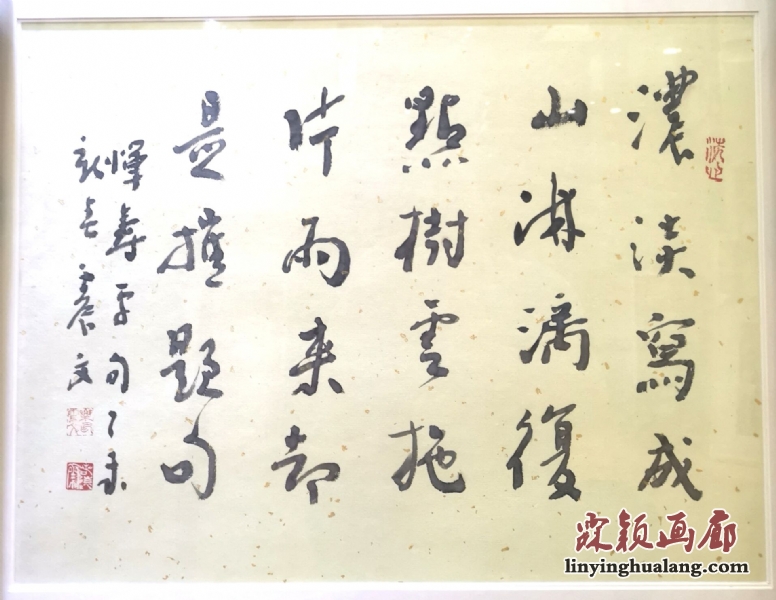 濃淡寫成
山淋漓復
點樹雲拖
片雨来却
是題句
惲壽平句丁未
新春震文
霖颖画廊
linyinghualang.com